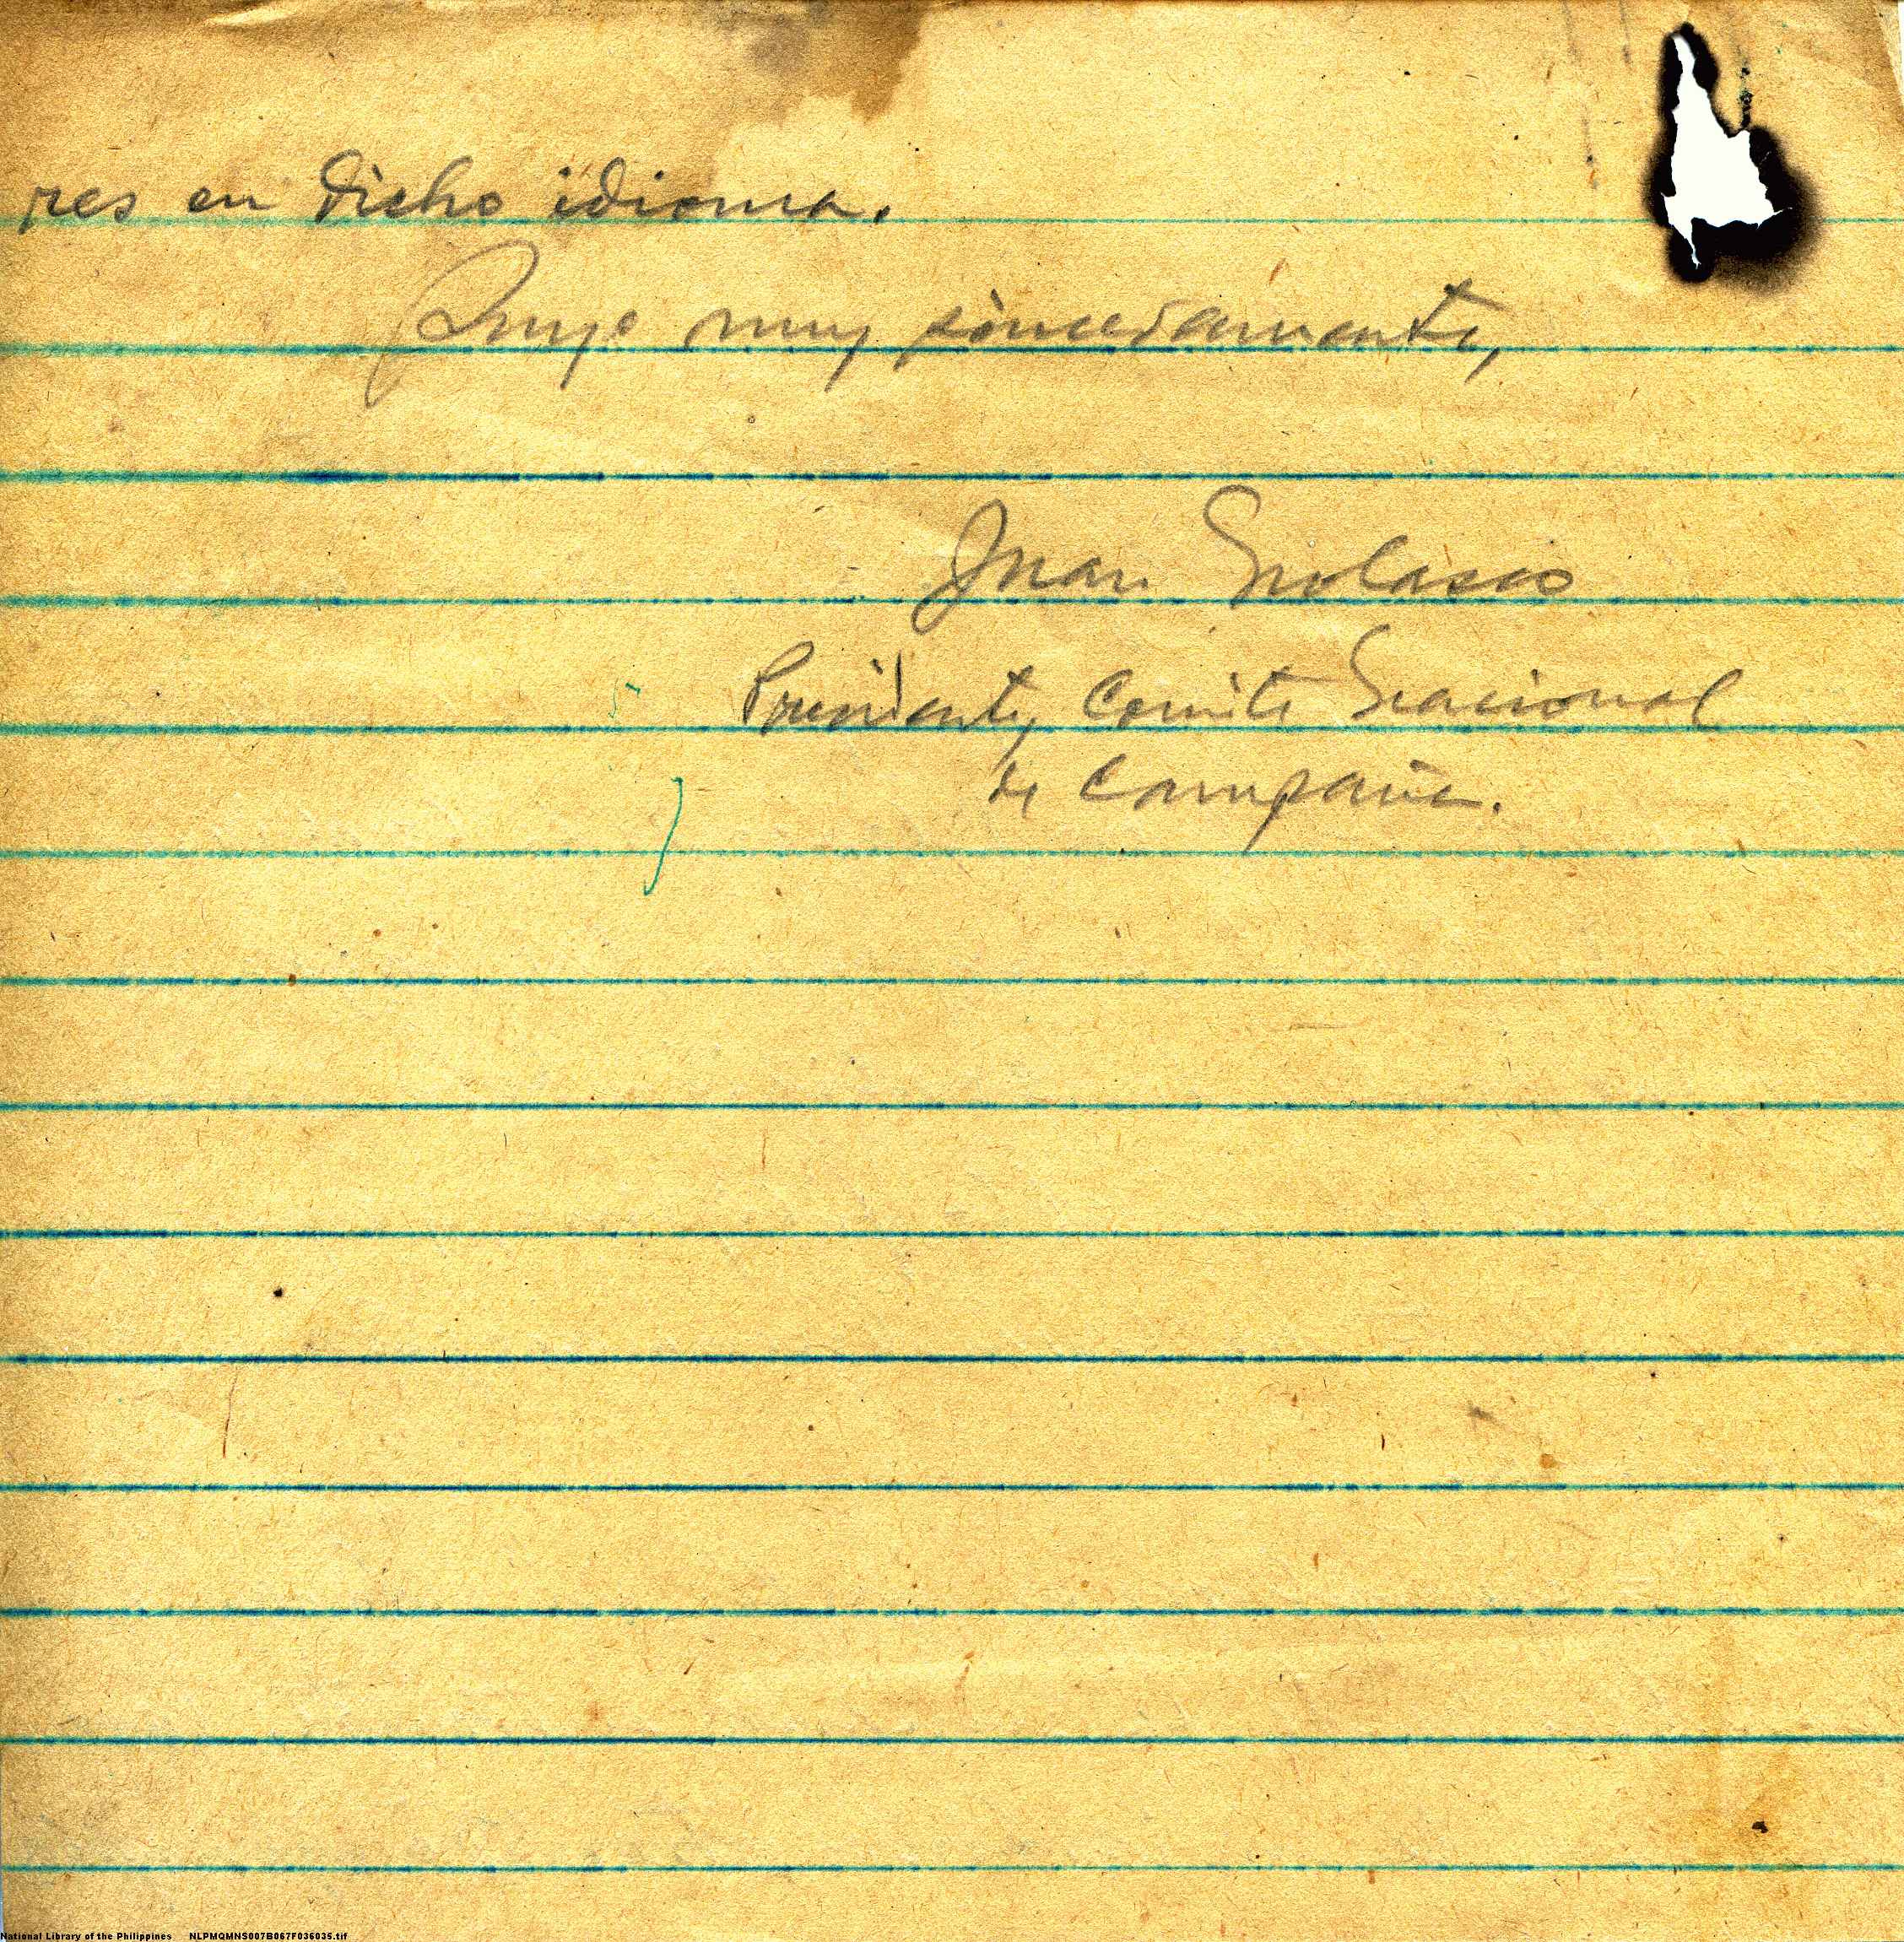 res en dicho idioma.
Suyo muy sinceramente,
Juan Nolasco
Presidente, Comite Nacional
de Campaña.
National Library of the Philippines NLPMQMNS007B067F036035.tif